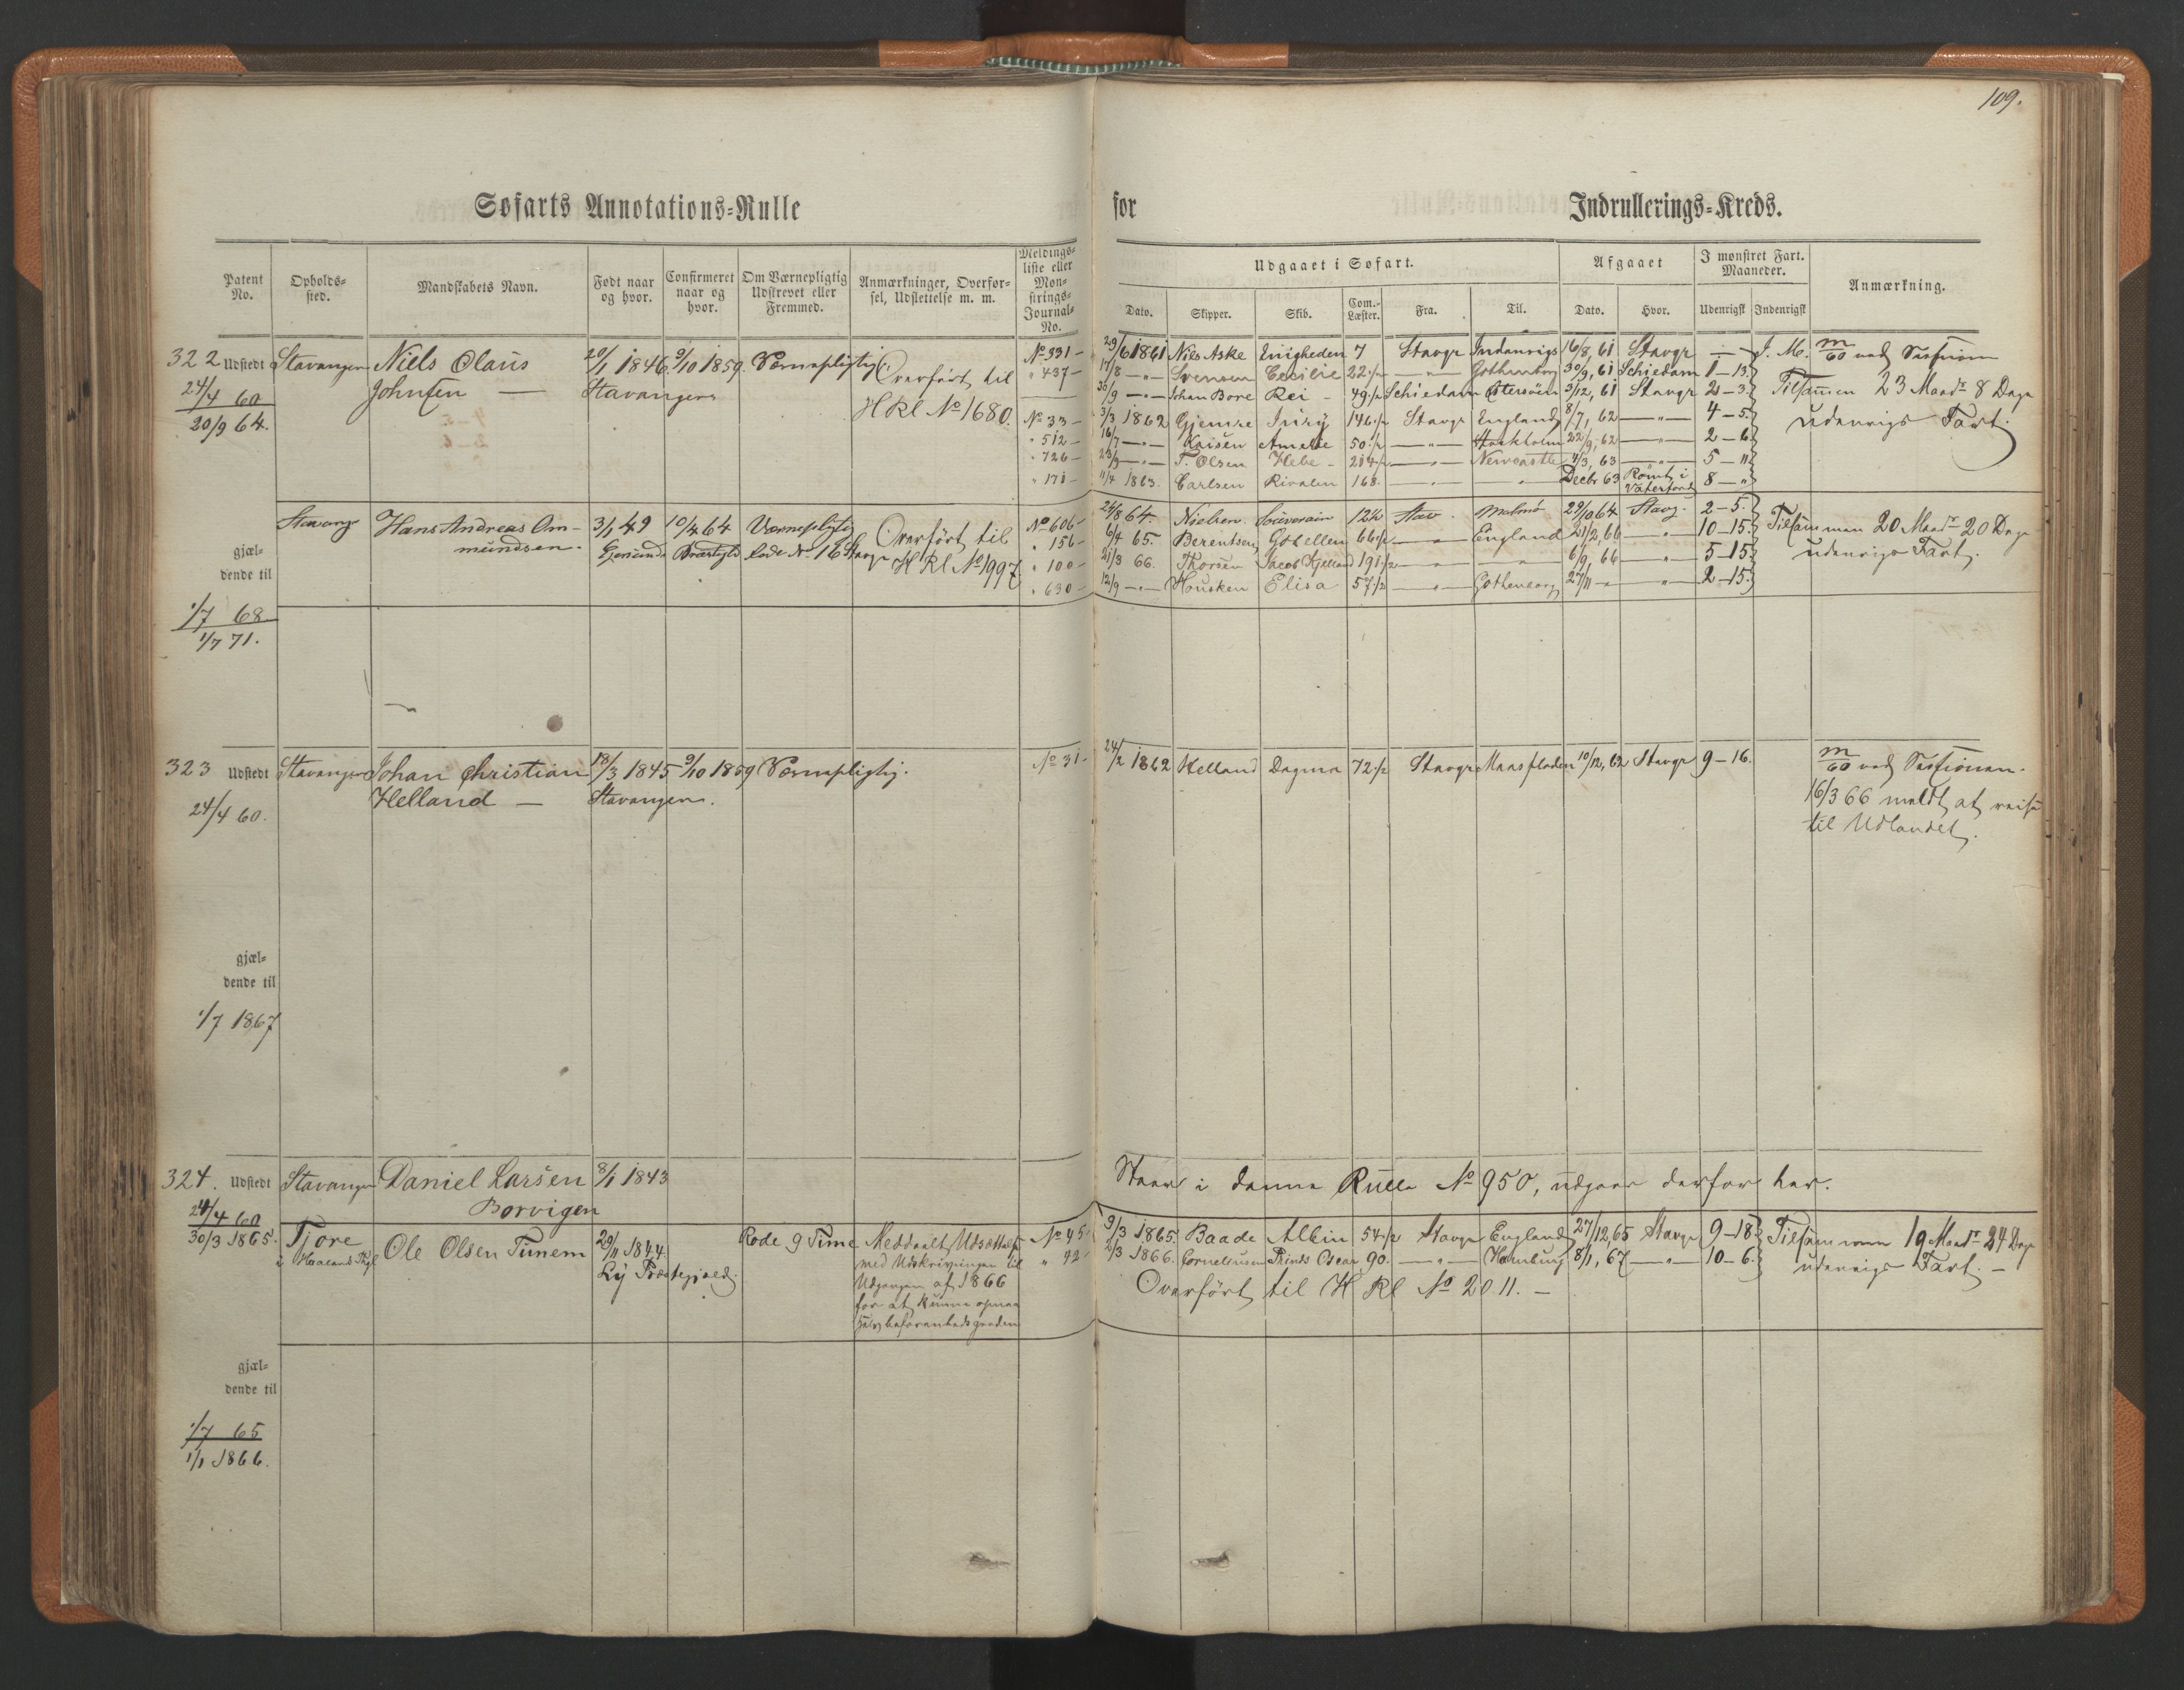 109.
Søfarts Annotations=Rulle
for Indrullerings=Kreds.
Patent No.
Opholds=sted.
Mandskabets Navn.
Født naar og hvor.
Confirmeret naar og hvor.
Om Værnepligtig Udskrevet eller Fremmed.
Anmærkninger, Overfør=sel, Udslettelse m. m.
Meldings=liste eller Mon=strings=Journal=No.
Udgaaet i Søfart.
Dato. Skipper. Skib. Com.=Læster. Fra. Til.
Afgaaet
Dato. Hvor.
I mønstret Fart. Maaneder.
Udenrigsk Indenrigsk
Anmærkning.
322 Udstedt Stavanger Niels Olaus 20/1 1846 9/10 1859. Værnepligtig. Overført til
24/4 60 Johnsen — Stavanger
20/9 64. H Rl No 1680.
No 331 – 29/6 1861 Nils Aske Enigheden 7 Stavgr Indenrigs 16/8, 61 Stavgr
" 437 – 17/8 —"— Svensen Cecilie 22 1/2 —"— Gothenborg 30/9, 61 Schiedam 1–13.
26/9 —"— Johan Bore Rei – 49 1/2 Schiedam Østersöen 3/12, 61 Stavgr 2–3.
No 33 – 3/3 1862 Gjemre Jury 146 1/2 Stavgr England 8/7, 62 —"— 4–5.
" 512 – 16/7 —"— Kaisen Amelie 50 1/2 —"— Stockholm 22/9, 62 —"— 2–6
" 726 – 23/9 —"— T. Olsen Hebe – 214 1/2 —"— Newcastle 4/3, 63 —"— 5–"
" 171 – 11/4 1863. Carlsen Rivalen 168. —"— " Decbr 63 Rømt i Vaterford 8–"
J. M. m/60 ved Sessionen
Tilsammen 23 Maadr 8 Dage
udenrigs Fart.
gjæl=
dende til
1/7 68
1/7 71.
Stavangr Hans Andreas Om= 3/1 49 10/4 64 Værnepligtig Overført til
mundsen. Egersund Rode No 16 Stavgr H Rl No 1997
No 606 – 24/8 64. Nielsen. Souverain 124 Stav. Malmö 29/10 64 Stavg. 2–5.
" 156 – 6/4 65. Berentsen Gobellen 66 1/2 —"— England 21/2, 66 —"— 10–15.
" 100 – 21/3 66. Thorsen Jacob Kjelland 191 1/2 —"— —"— 6/9, 66 —"— 5–15
" 630 – 12/9 —"— Housken Elisa 57 1/2 —"— Gothenborg 27/11 –" —"— 2–15.
Tilsammen 20 Maadr 20 Dage
udenrigs Fart.
323 Udstedt Stavanger Johan Christian 13/3 1845 9/10 1859 Værnepligtig.
24/4 60. Helland — Stavanger.
No 31 – 24/2 1862 Helland Dagma 72 1/2 Stavgr Maasfloden 10/12, 62 Stavgr 9–16.
m/60 ved Sessionen.
16/3 66 meldt at reise
til Udlandet.
gjæl=
dende til
1/7 1867
324. Udstedt Stavanger Daniel Larsen 8/1 1843
24/4 60 Borvigen
Staar i denne Rulle No 950, udgaar derfor her.
30/3 1865. Tjore Ole Olsen Tunem 29/11 1844. Rode 9 Time
i Haaland Lÿ Præstegjæld.
Meddeelt Udsættelse
med Udskrivningen til
Udgangen af 1866
for at kunne opnaa
No 45 – 9/3 1865. Baade Albin 54 1/2 Stavgr England 27/12, 65 Stavgr 9–18
" 92 – 2/3 1866. Corneliusen Prinds Oscar 90. —"— Hamburg 8/1, 67 —"— 10–6.
Tilsammen 19 Maadr 24 Dage
udenrigs Fart. –
Overført til H Rl No 2011. –
gjæl=
dende til
1/7 65
1/1 1866.